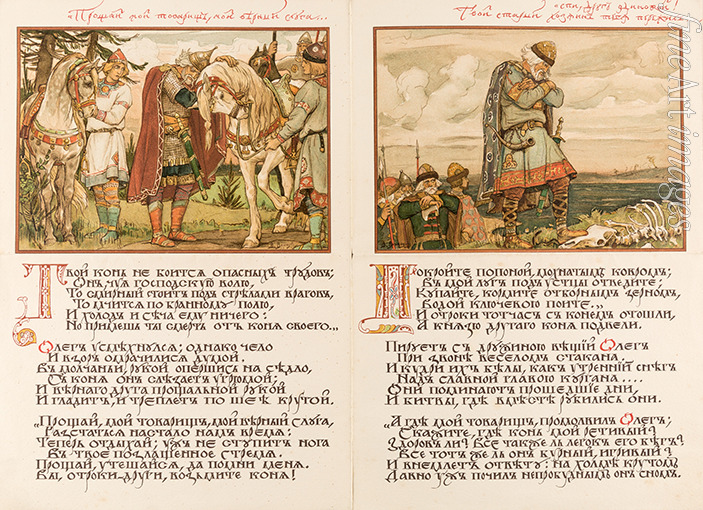 „Прощай мой товарищъ, мой вѣрный слуга...
Твой конь не боится опасныхъ трудовъ;
Онъ, чуя господскую волю,
То смирный стоитъ подъ стрѣлами враговъ,
То мчится по бранному полю,
И холодъ и сѣча ему ничего:
Но примешь ты смерть отъ коня своего..„
Олегъ усмѣхнулся; однако чело
И взоръ омрачилися думой.
Въ молчаньи, рукой опершись на сѣдло,
Съ коня онъ слѣзаетъ угрюмой;
И вѣрнаго друга прощальной рукой
И гладитъ, и треплетъ по шеѣ крутой.
„Прощай, мой товарищъ, мой вѣрный слуга,
Разстаться настало намъ время:
Теперь отдыхай; ужъ не ступитъ нога
Въ твое позлащенное стремя.
Прощай, утешайся, да помни меня.
Вы, отроки други, возьмите коня!
„спи, другъ одинокій!
Твой старый хозяинъ тебя пережилъ
Покройте попоной, мохнатымъ ковромъ;
Въ мой лугъ подъ устцы отведите;
Купайте, кормите отборнымъ зерномъ,
Водой ключевою поите..„
И отроки тотчасъ съ конемъ отошли,
А князю другаго коня подвели.
Пируетъ съ дружиною вѣщій Олегъ
При звонѣ веселомъ стакана.
И кудри ихъ бѣлы, какъ утренній снѣгъ
Надъ славной главою кургана....
Они поминаютъ прошедшіе дни,
И битвы, гдѣ вмѣстѣ рубились они.
„А гдѣ мой товарищъ, промолвилъ Олегъ;
Скажите, гдѣ конь мой ретивый?
Здоровъ ли? Все также ль легокъ его бѣгъ?
Все тотъ же ль онъ бурный, игривый?
И внемлетъ отвѣту: на холмѣ крутомъ
Давно ужъ почилъ непробуднымъ онъ сномъ.
fine art images